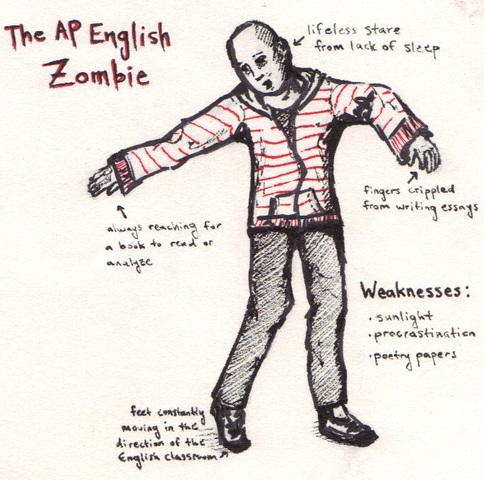 The AP English
Zombie
lifeless stare
from lack of sleep
always reaching for
a book to read or
analyze
fingers crippled
from writing essays
Weaknesses:
• sunlight
• procrastination
• poetry papers
feet constantly
moving in the
direction of the
English classroom